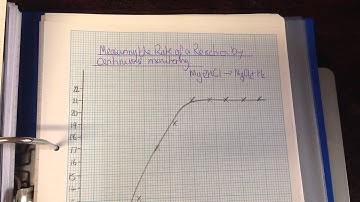 Measuring the Rate of a Reaction by
continuous monitoring
Mg+2HCl → MgCl2+H2
22
21
20
19
18
17
16
15
14
13